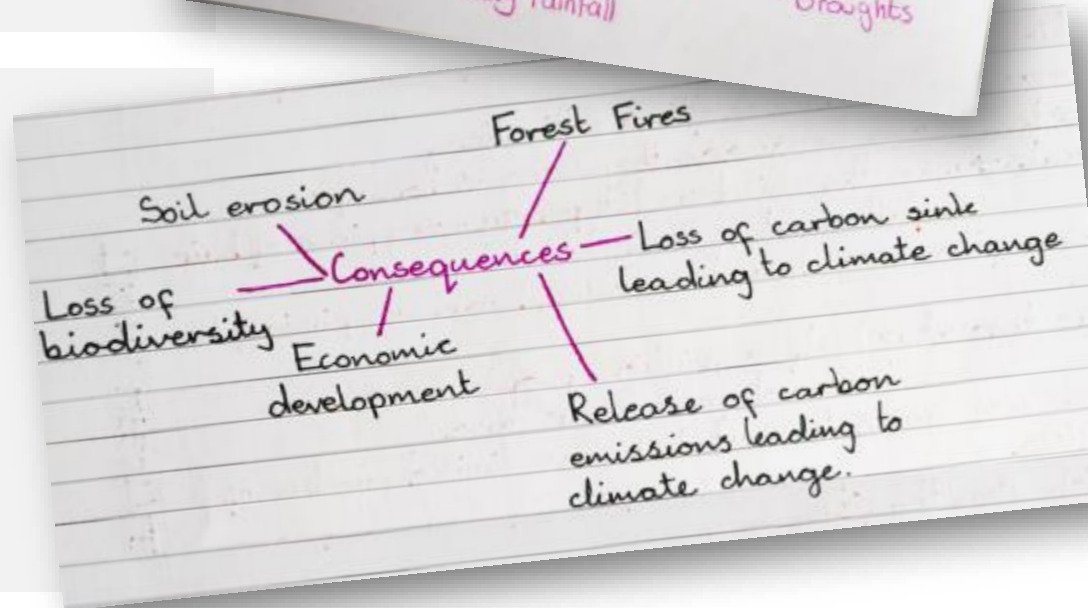 rainfall
Droughts
Forest Fires
Soil erosion
Consequences
Loss of carbon sink
leading to climate change
Loss of
biodiversity
Economic
development
Release of carbon
emissions leading to
climate change.